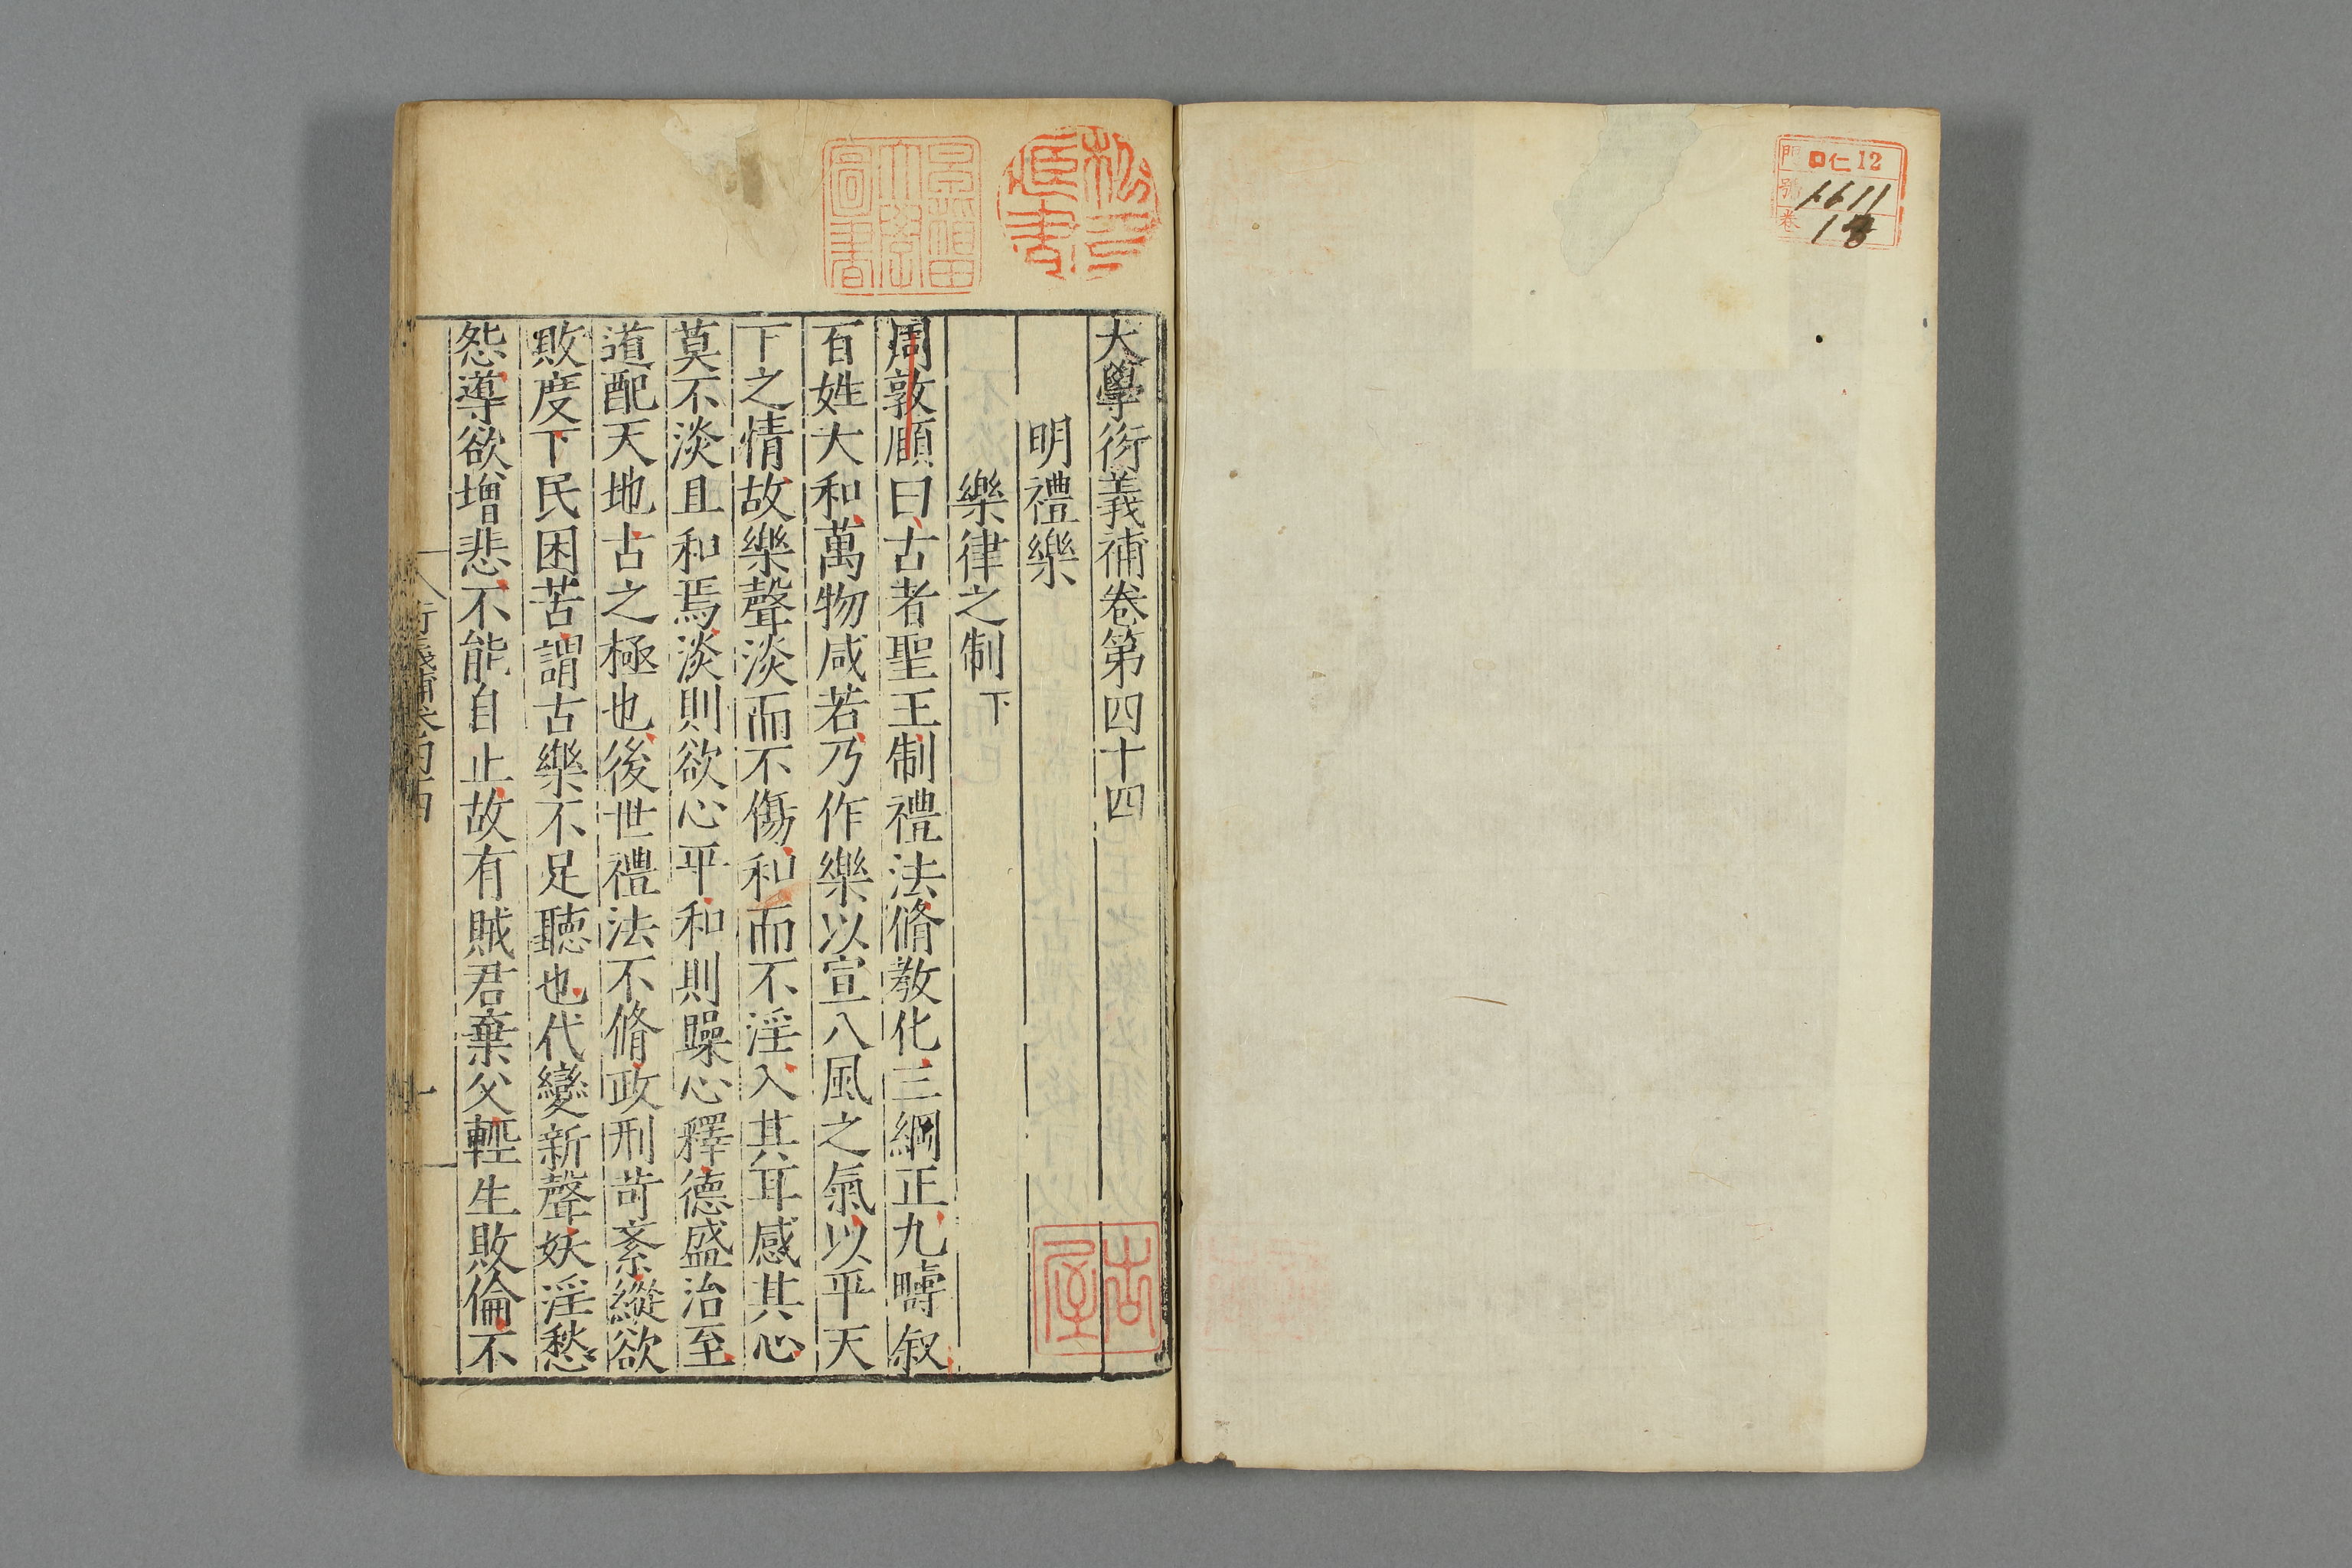 門 ロ仁12
號 1611
卷 18
大學衍義補卷第四十四
明禮樂
樂律之制 下
周敦頤曰古者聖王制禮法脩敎化三綱正九疇叙
百姓大和萬物咸若乃作樂以宣八風之氣以平天
下之情故樂聲淡而不傷和而不淫入其耳感其心
莫不淡且和焉淡則欲心平和則躁心釋德盛治至
道配天地古之極也後世禮法不脩政刑苛紊縱欲
敗度下民困苦謂古樂不足聽也代變新聲妖淫愁
怨導欲增悲不能自止故有賊君棄父輕生敗倫不
衍義補卷四十四
一